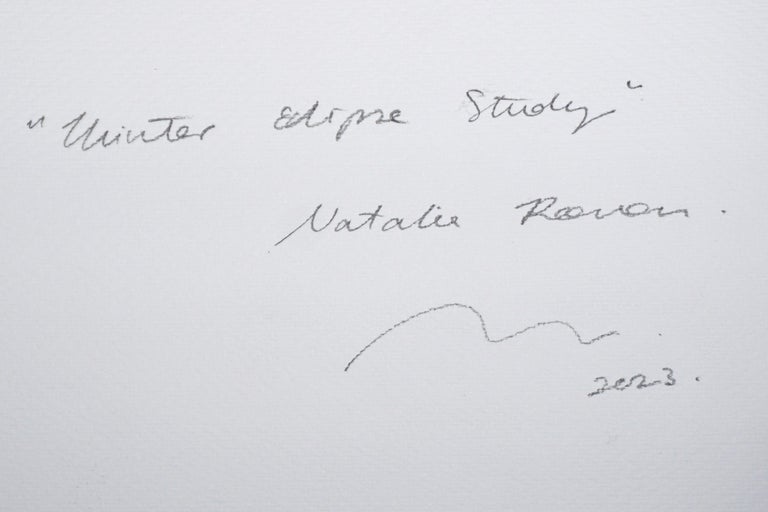 "Winter Eclipse Study"
Natalie Rowan.
2023.